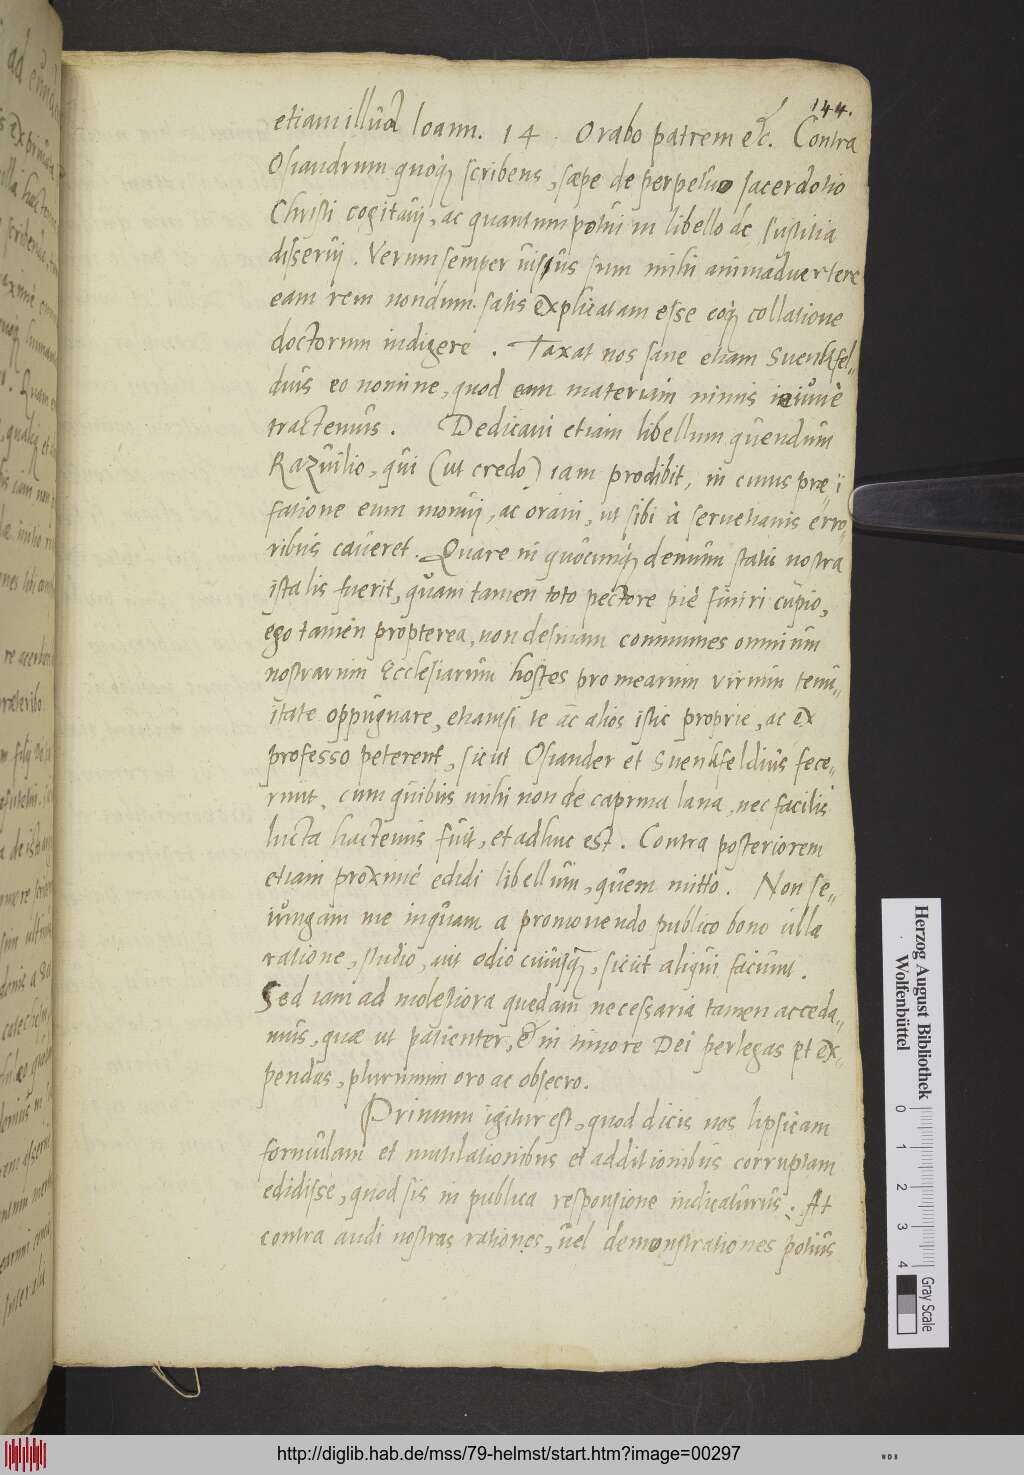 144.
etiam illud Ioann. 14. Orabo patrem etc. Contra
Osiandrum quoq; scribens, sæpe de perpetuo sacerdotio
Christi cogitavi, ac quantum potui in libello de Iustitia
disserui. Verum semper visus sum mihi animadvertere
eam rem nondum satis explicatam esse eoq; collatione
doctorum indigere. Taxat nos sane etiam Suenkfel-
dius eo nomine, quod eam materiam nimis
tractemus. Dedicavi etiam libellum quendam
Razuilio, qui (ut credo) iam prodibit, in cuius præ-
fatione eum monui, ac oravi, ut sibi à servetianis erro-
ribus caveret. Quare in quocunq; demum statu nostra
ista lis fuerit, quam tamen toto pectore pie finiri cupio,
ego tamen propterea, non desinam communes omnium
nostrarum Ecclesiarum hostes pro mearum virium tenu-
itate oppugnare, etiamsi te ac alios istic proprie, ac ex
professo peterent, sicut Osiander et Suenkfeldius fece-
runt, cum quibus mihi non de caprina lana, nec facilis
lucta hactenus fuit, et adhuc est. Contra posteriorem
etiam proxime edidi libellum, quem mitto. Non se-
iungam me inquam a promovendo publico bono ulla
ratione, studio, aut odio cuiusq;, sicut aliqui faciunt.
Sed iam ad molestiora quedam necessaria tamen acceda-
mus, quæ ut patienter, & in timore Dei perlegas et ex-
pendas, plurimum oro ac obsecro.
Primum igitur est, quod dicis nos lipsicam
formulam et mutilationibus et additionibus corruptam
edidisse, quod sis in publica responsione indicaturus. At
contra audi nostras rationes, vel demonstrationes potius
Herzog August Bibliothek
Wolfenbüttel
0 1 2 3 4
Gray Scale
http://diglib.hab.de/mss/79-helmst/start.htm?image=00297
WDB